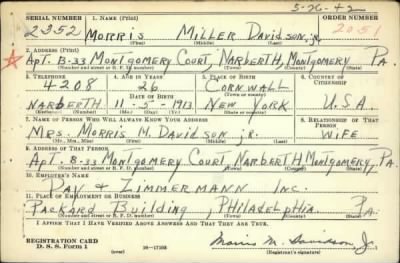 5-26-42
SERIAL NUMBER 1. NAME (Print) ORDER NUMBER
2352 MORRIS MILLER DAVIDSON, jr. 2051
(First) (Middle) (Last)
2. ADDRESS (Print)
APT. B-33 MONTGOMERY COURT, NARBERTH, MONTGOMERY PA.
(Number and street or R. F. D. number) (Town) (County) (State)
3. TELEPHONE 4. AGE IN YEARS 5. PLACE OF BIRTH 6. COUNTRY OF CITIZENSHIP
4208 26 CORNWALL
DATE OF BIRTH (Town or county)
NARBERTH 11-5-1913 NEW YORK U.S.A.
(Exchange) (Mo.) (Day) (Yr.) (State or country)
7. NAME OF PERSON WHO WILL ALWAYS KNOW YOUR ADDRESS 8. RELATIONSHIP OF THAT PERSON
MRS. MORRIS M. DAVIDSON jr. WIFE
(Mr., Mrs., Miss) (First) (Middle) (Last)
9. ADDRESS OF THAT PERSON
APT. B-33 MONTGOMERY COURT NARBERTH MONTGOMERY, PA.
(Number and street or R. F. D. number) (Town) (County) (State)
10. EMPLOYER'S NAME
DAY & ZIMMERMANN INC.
11. PLACE OF EMPLOYMENT OR BUSINESS
PACKARD BUILDING, PHILADELPHIA. PA.
(Number and street or R. F. D. number) (Town) (County) (State)
I AFFIRM THAT I HAVE VERIFIED ABOVE ANSWERS AND THAT THEY ARE TRUE.
REGISTRATION CARD
D. S. S. Form 1 (over) 16-17105 Morris M. Davidson, Jr.